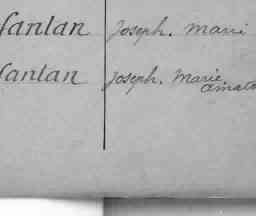 fantan Joseph. Marie
fantan Joseph. Marie
amato